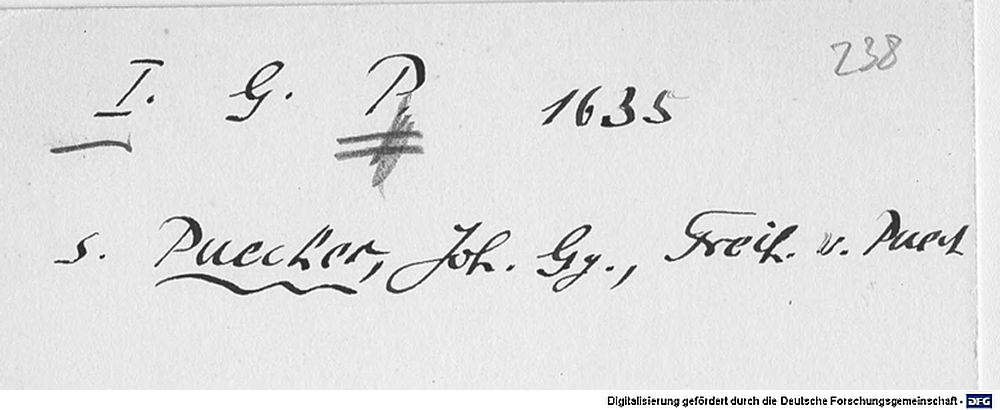 238
I. G. P. 1635
s. Puecher, Joh. Gg., Freih. v. Puech
Digitalisierung gefördert durch die Deutsche Forschungsgemeinschaft - DFG